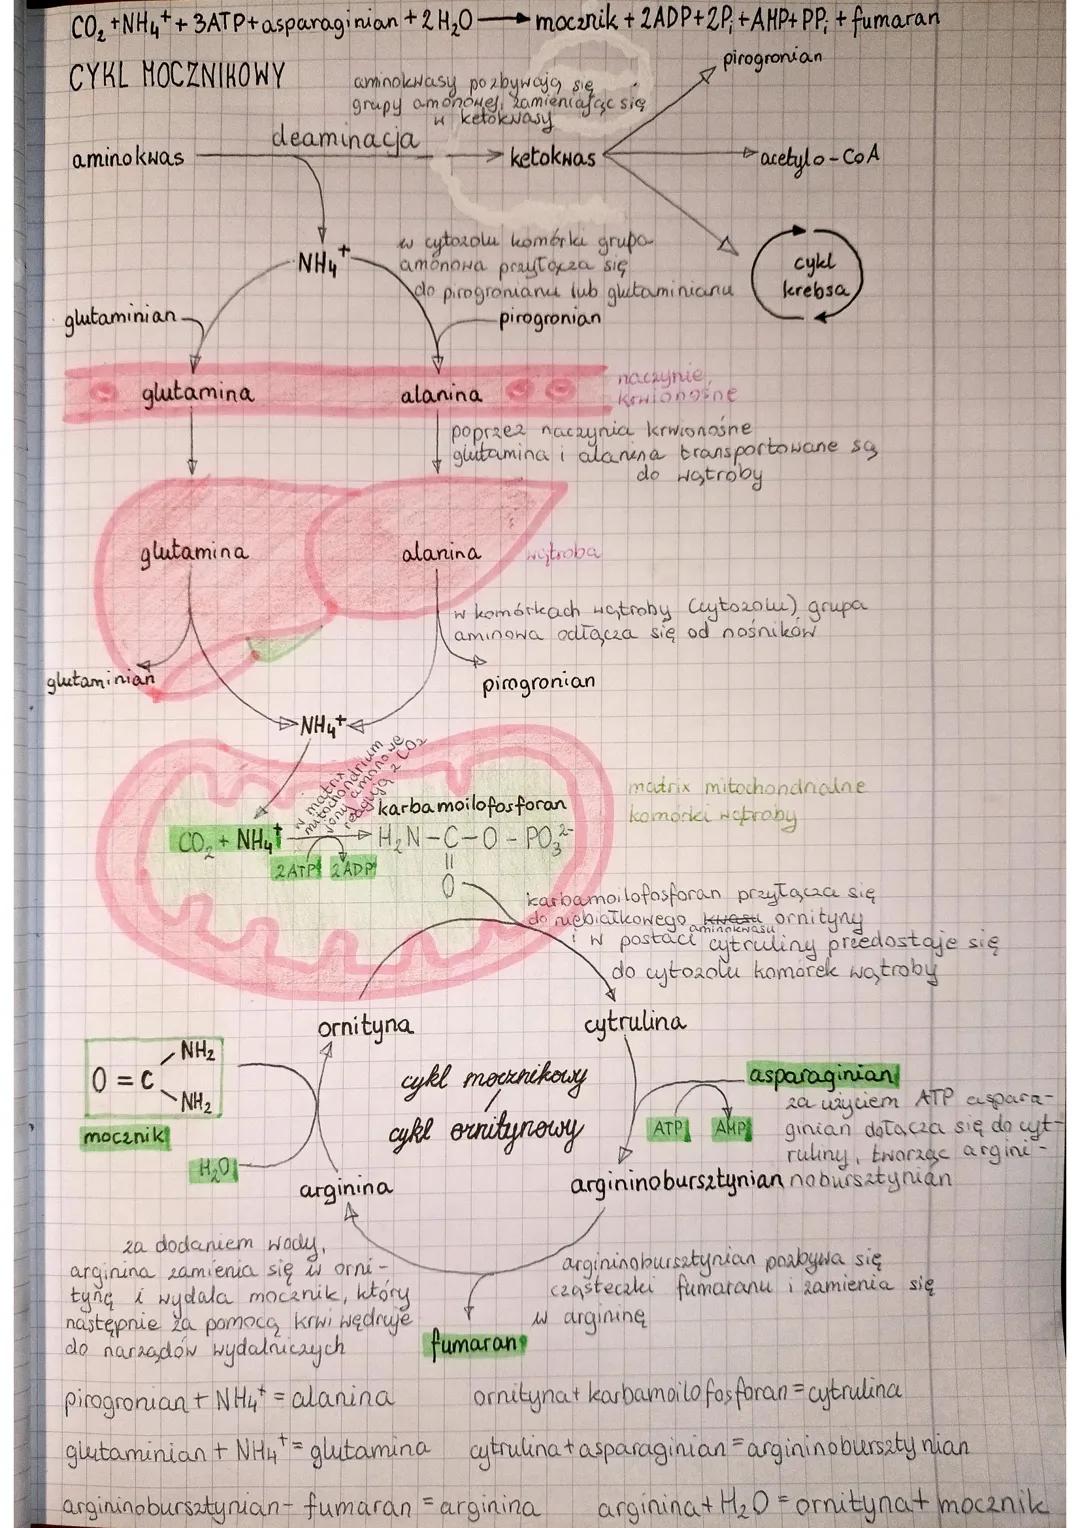 CO₂+NH₄⁺+3ATP+asparaginian+2H₂O → mocznik+2ADP+2Pᵢ+AMP+PPᵢ+fumaran
CYKL MOCZNIKOWY
aminokwasy pozbywają się
grupy amonowej, zamieniając się
w ketokwasy
pirogronian
deaminacja
aminokwas
ketokwas
acetylo-CoA
NH₄⁺
w cytozolu komórki grupa
amonowa przyłącza się
do pirogronianu lub glutaminianu
cykl
krebsa
glutaminian
pirogronian
glutamina
alanina
naczynie
krwionośne
poprzez naczynia krwionośne
glutamina i alanina transportowane są
do wątroby
glutamina
alanina
wątroba
w komórkach wątroby (cytozolu) grupa
aminowa odłącza się od nośników
glutaminian
pirogronian
NH₄⁺
w matrix
mitochondrium
jony amonowe
reagują z CO₂
karbamoilofosforan
matrix mitochondrialne
komórki wątroby
CO₂ + NH₄⁺
H₂N-C-O-PO₃²⁻
2ATP 2ADP
O
karbamoilofosforan przyłącza się
do niebiałkowego kwasu aminokwasu ornityny
i w postaci cytruliny przedostaje się
do cytozolu komórek wątroby
ornityna
cytrulina
NH₂
O=C
NH₂
mocznik
H₂O
cykl mocznikowy
/
cykl ornitynowy
asparaginian
ATP AMP
za użyciem ATP aspara-
ginian dołącza się do cyt-
ruliny, tworząc argini-
nobursztynian
arginina
argininobursztynian
za dodaniem wody,
arginina zamienia się w orni-
tynę i wydala mocznik, który
następnie za pomocą krwi wędruje
do narządów wydalniczych
argininobursztynian pozbywa się
cząsteczki fumaranu i zamienia się
w argininę
fumaran
pirogronian + NH₄⁺ = alanina
ornityna+karbamoilofosforan=cytrulina
glutaminian + NH₄⁺ = glutamina
cytrulina+asparaginian=argininobursztynian
argininobursztynian - fumaran = arginina
arginina+H₂O=ornityna+mocznik